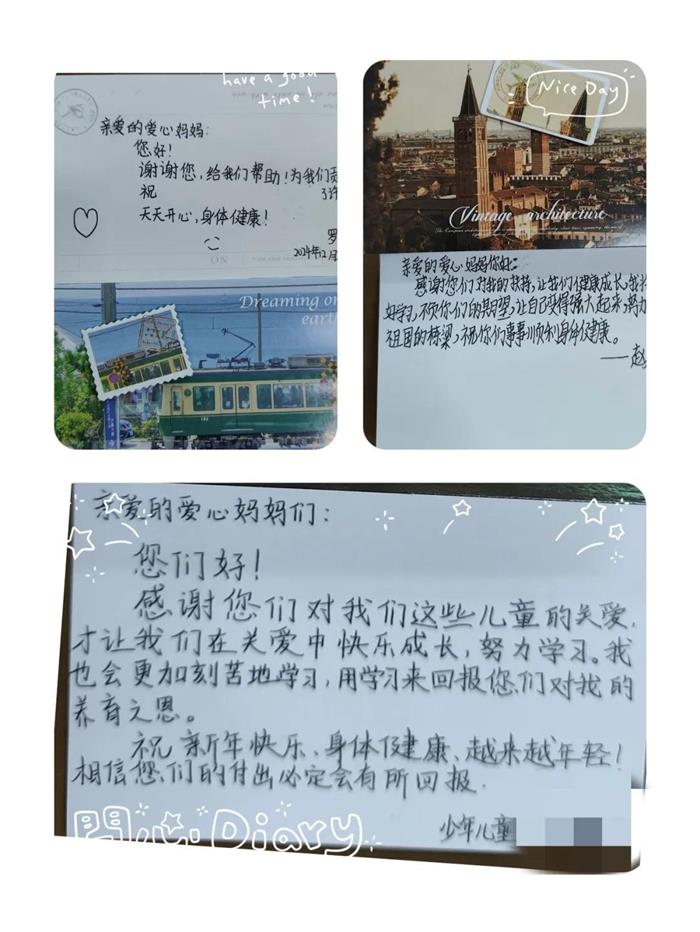 have a good
time!
亲爱的爱心妈妈:
您好!
谢谢您,给我们帮助!为我们
祝
天天开心,身体健康!
罗
2024年12月
ON
Dreaming on
earth
Nice Day
Vintage architecture
亲爱的爱心妈妈你好:
感谢您们对我的扶持,让我们健康成长,我
好学习,不负你们的期望,让自己变得强大起来,努力
祖国的栋梁,祝你们事事顺利身体健康。
——赵
亲爱的爱心妈妈们:
您们好!
感谢您们对我们这些儿童的关爱,
才让我们在关爱中快乐成长,努力学习。我
也会更加刻苦地学习,用学习来回报您们对我的
养育之恩。
祝新年快乐、身体健康、越来越年轻!
相信您们的付出必定会有所回报.
少年儿童
開心.Diary